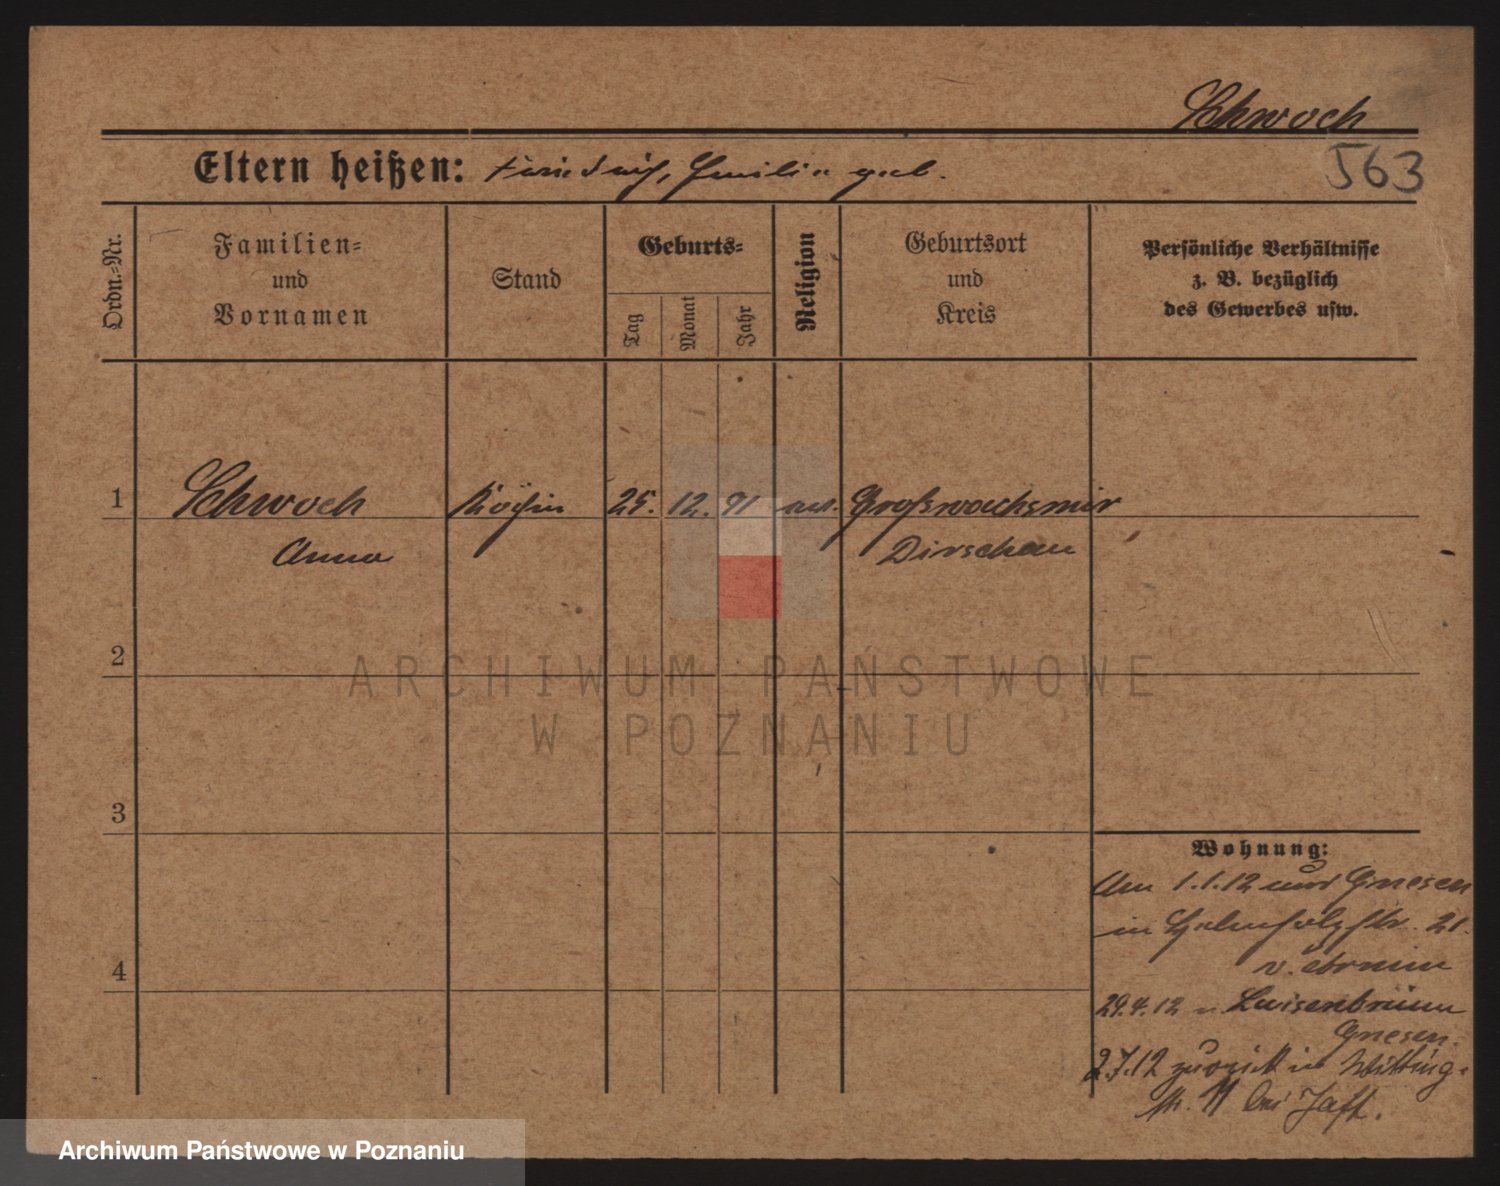 Schwoch
563
Eltern heißen: Friedrich, Emilie geb.
Ordn.-Nr.
Familien-
und
Vornamen
Stand
Geburts-
Tag
Monat
Jahr
Religion
Geburtsort
und
Kreis
Persönliche Verhältnisse
z. B. bezüglich
des Gewerbes usw.
1 Schwoch Köchin 25. 12. 91 Großwachsmir
Anna Dirschau
2
3
4
Wohnung:
Am 1.1.12 Gnesen
in str. 21.
v.
29.4.12 n. Luisenbrunn
Gnesen.
2.7.12 zurück in Witting-
str. 11 bei
ARCHIWUM PAŃSTWOWE
W POZNANIU
Archiwum Państwowe w Poznaniu